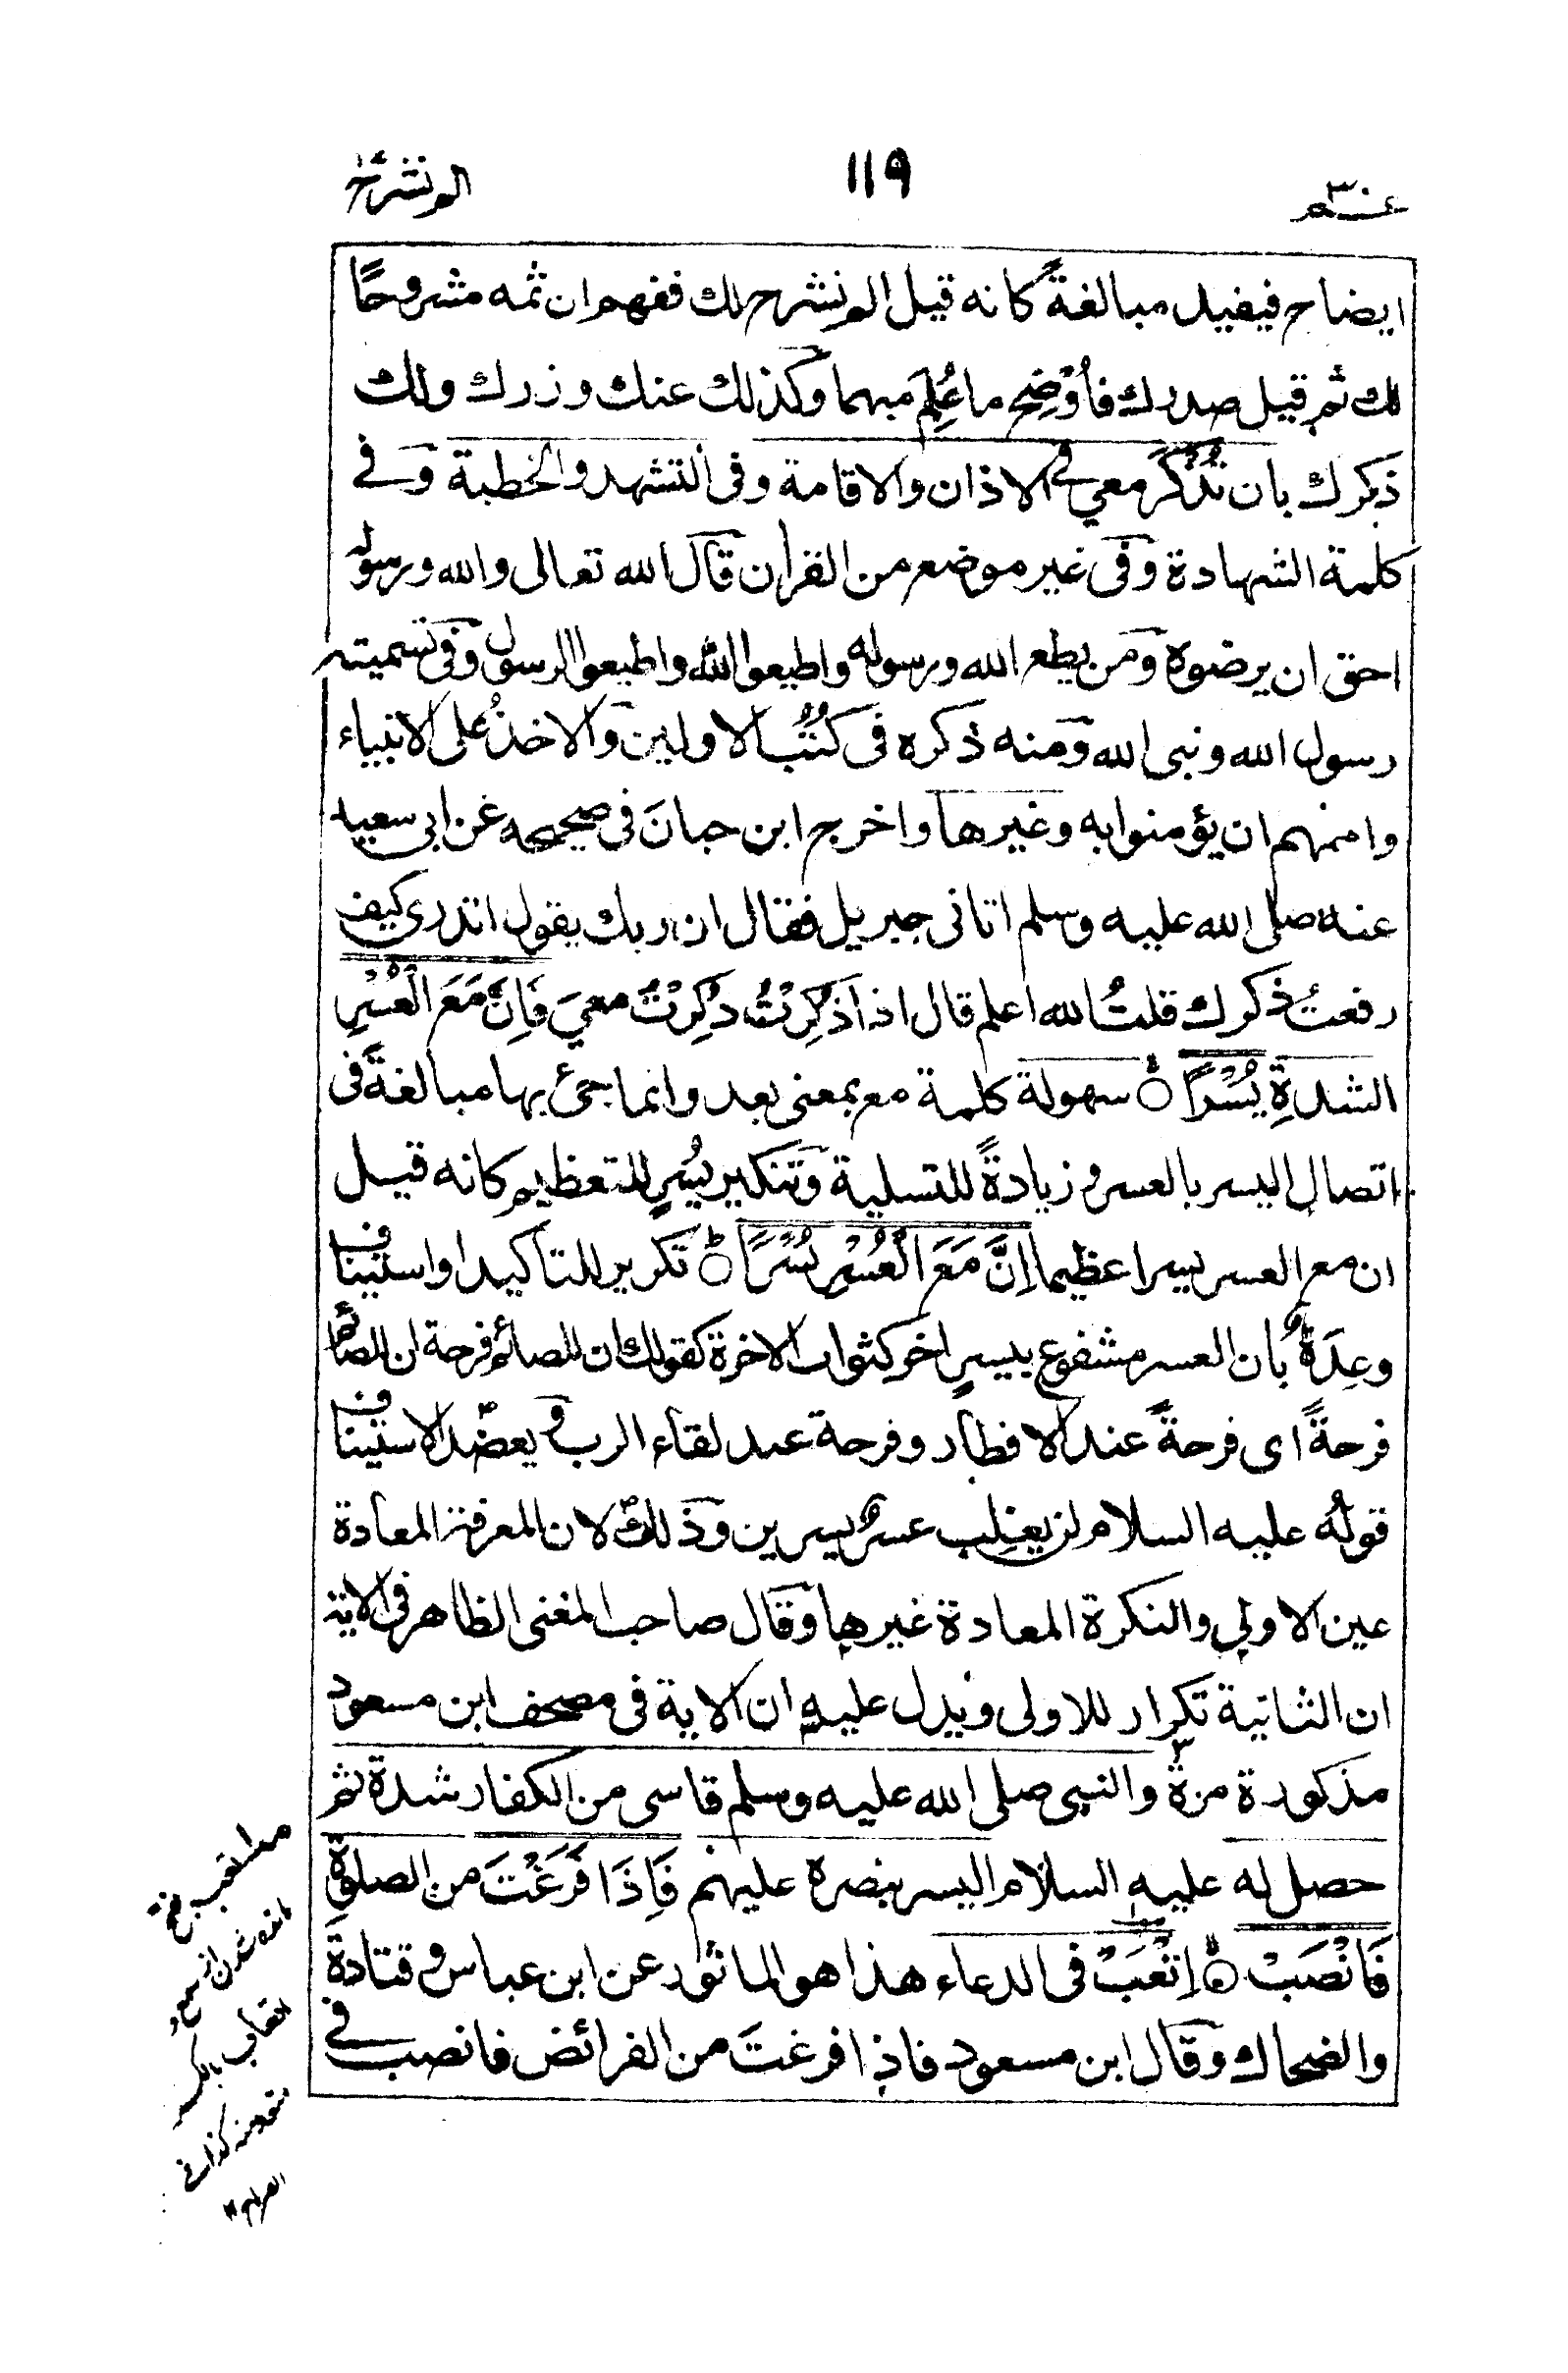 عم ٣٠
١١٩
الم نشرح
ايضاح فيفيد مبالغةً كانه قيل الم نشرح لك ففهم ان ثمه مشروحًا
لك ثم قيل صدرك فأُوْضِحَ ما عُلِمَ مبهما وكذلك عنك وزرك ولك
ذكرك بان تُذْكَرَ معي في الاذان والاقامة وفى التشهد والخطبة وفے
كلمة الشهادة وفى غير موضع من القرأن قال الله تعالى والله ورسوله
احق ان يرضوه ومن يطع الله ورسوله واطيعوا الله واطيعوا الرسول وفى تسميته
رسول الله ونبى الله ومنه ذكره فى كُتُب الاولين والاخذُ على الانبياء
واممهم ان يؤمنوا به وغيرها واخرج ابن حبانَ فى صحيحه عن ابى سعيد
عنه صلى الله عليه وسلم اتانى جبريل فقال ان ربك يقول اتدرى كيف
رفعتُ ذكرك قلتُ الله اعلم قال اذا ذُكِرْتُ ذُكِرْتَ معيَ فَاِنَّ مَعَ الْعُسْرِ
الشدةِ يُسْرًا ۝ سهولة كلمة مع بمعنى بعد وانما جئ بها مبالغةً فى
اتصال اليسر بالعسر و زيادةً للتسلية وتنكير يُسْرٍ للتعظيم كانه قيل
ان مع العسر يسرا عظيما اِنَّ مَعَ الْعُسْرِ يُسْرًا ۝ تكرير للتأكيد او استيناف
وعِدَةٌ بان العسر مشفوع بيسرٍ اخر كثواب الاخرة كقولك ان للصائم فرحة ان للصائم
فرحةً اى فرحةً عند الافطار وفرحة عند لقاء الرب و يعضد الاستيناف
قولُه عليه السلام لن يغلب عسرٌ يسرين وذلك لان المعرفة المعادة
عين الاولى والنكرة المعادة غيرها وقال صاحب المغنى الظاهر فى الاية
ان الثانية تكرار للاولى ويدل عليه ان الاية فى مصحف ابن مسعود
مذكورة مرة والنبى صلى الله عليه وسلم قاسى من الكفار شدة ثم
حصل له عليه السلام اليسر بنصره عليهم فَاِذَا فَرَغْتَ من الصلوةِ
فَانْصَبْ ۝ اِتْعَبْ فى الدعاء هذا هو الماثور عن ابن عباس و قتادةَ
والضحاك وقال ابن مسعود فاذا فرغتَ من الفرائض فانصب فے